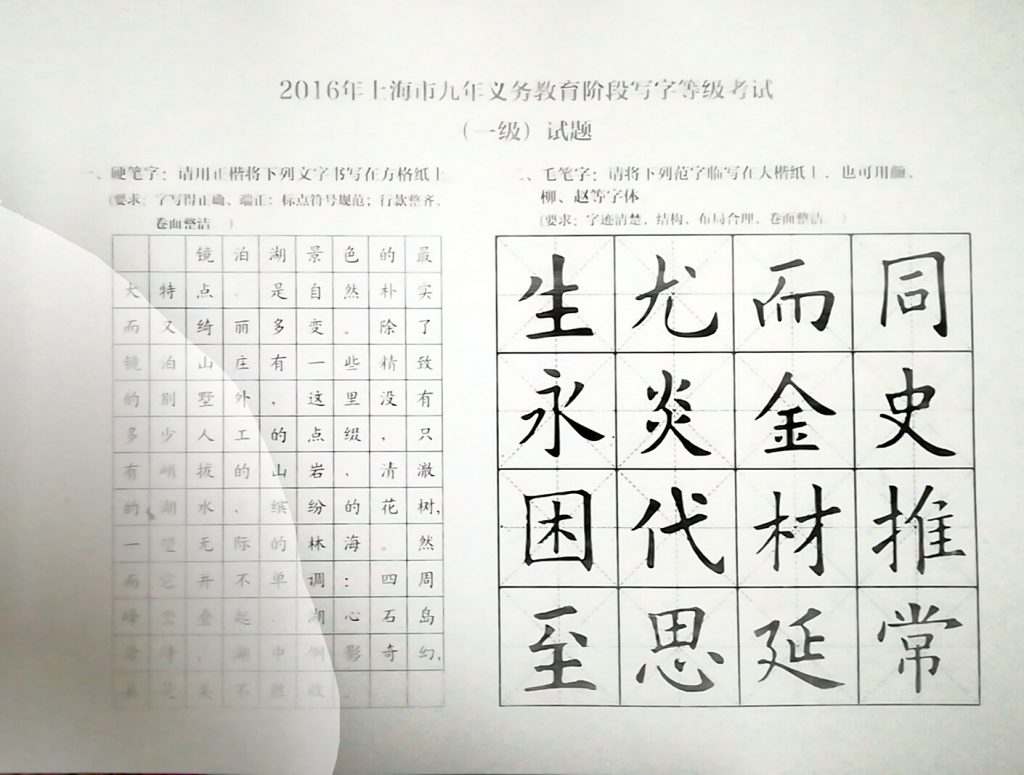 2016年上海市九年义务教育阶段写字等级考试
（一级）试题
一、硬笔字：请用正楷将下列文字书写在方格纸上
（要求：字写得正确、端正；标点符号规范；行款整齐、
卷面整洁 ）
镜泊湖景色的最
大特点、是自然朴实
而又绮丽多变。除了
镜泊山庄有一些精致
的别墅外，这里没有
多少人工的点缀，只
有峭拔的山岩、清澈
的湖水、缤纷的花树，
一望无际的林海。然
而它并不单调：四周
峰峦叠起 湖心石岛
耸峙，湖中倒影奇幻，
真是美不胜收
二、毛笔字：请将下列范字临写在大楷纸上，也可用颜、
柳、赵等字体
（要求：字迹清楚、结构、布局合理、卷面整洁 ）
生尤而同
永炎金史
困代材推
至思延常